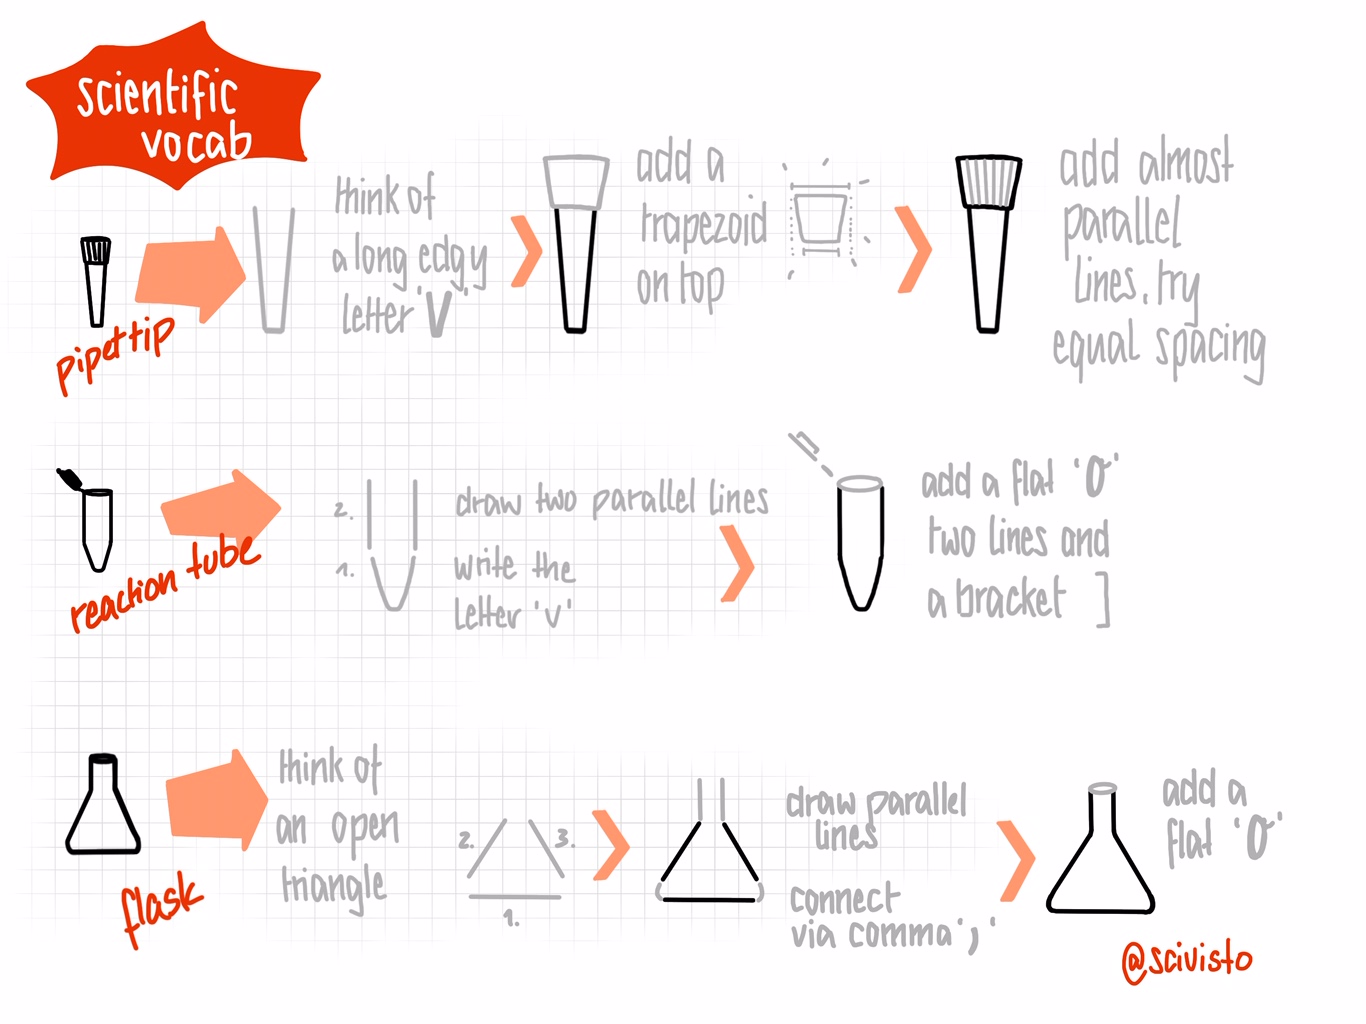 scientific
vocab
pipettip
think of
a long edgy
letter 'V'
add a
trapezoid
on top
add almost
parallel
lines, try
equal spacing
reaction tube
2.
draw two parallel lines
1.
write the
letter 'v'
add a flat 'O'
two lines and
a bracket ]
flask
think of
an open
triangle
2. 3.
1.
draw parallel
lines
connect
via comma ','
add a
flat 'O'
@scivisto